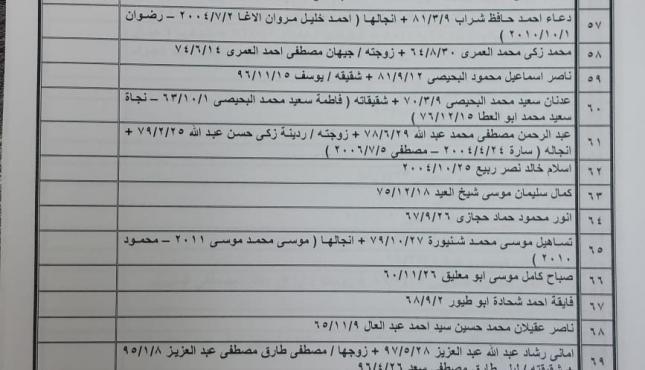 ٥٧ دعاء احمد حافظ شراب ٨١/٣/٩ + انجالها ( احمد خليل مروان الاغا ٢٠٠٤/٧/٢ – رضوان
٢٠١٠/١٠/١ )
٥٨ محمد زكى محمد العمرى ٦٤/٨/٣٠ + زوجته / جيهان مصطفى احمد العمرى ٧٤/٦/١٤
٥٩ ناصر اسماعيل محمود البحيصى ٨١/٩/١٢ + شقيقه / يوسف ٩٦/١١/١٥
٦٠ عدنان سعيد محمد البحيصى ٧٠/٣/٩ + شقيقاته ( فاطمة سعيد محمد البحيصى ٦٣/١٠/١ – نجاة
سعيد محمد ابو العطا ٧٦/١٢/١٥ )
٦١ عبد الرحمن مصطفى محمد عبد الله ٧٨/٦/٢٩ + زوجته / ردينة زكى حسن عبد الله ٧٩/٢/٢٥ +
انجاله ( سارة ٢٠٠٤/٤/٢٤ – مصطفى ٢٠٠٦/٧/٥ )
٦٢ اسلام خالد نصر ربيع ٢٠٠٤/١٠/٢٥
٦٣ كمال سليمان موسى شيخ العيد ٧٥/١٢/١٨
٦٤ انور محمود حماد حجازى ٦٧/٩/٢٦
٦٥ تساهيل موسى محمد شنيورة ٧٩/١٠/٢٧ + انجالها ( موسى محمد موسى ٢٠١١ – محمود
٢٠١٠ )
٦٦ صباح كامل موسى ابو معليق ٦٠/١١/٢٦
٦٧ فايقة احمد شحادة ابو طيور ٦٨/٩/٢
٦٨ ناصر عقيلان محمد حسين سيد احمد عبد العال ٦٥/١١/٩
٦٩ امانى رشاد عبد الله عبد العزيز ٩٧/٥/٢٨ + زوجها / مصطفى طارق مصطفى عبد العزيز ٩٥/١/٨
طارق مصطفى سعد ٩٦/٤/٢٦